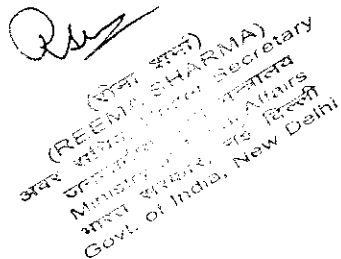 (रीमा शर्मा)
(REEMA SHARMA)
अवर सचिव/Under Secretary
मन्त्रालय
Ministry of Affairs
भारत सरकार, नई दिल्ली
Govt. of India, New Delhi